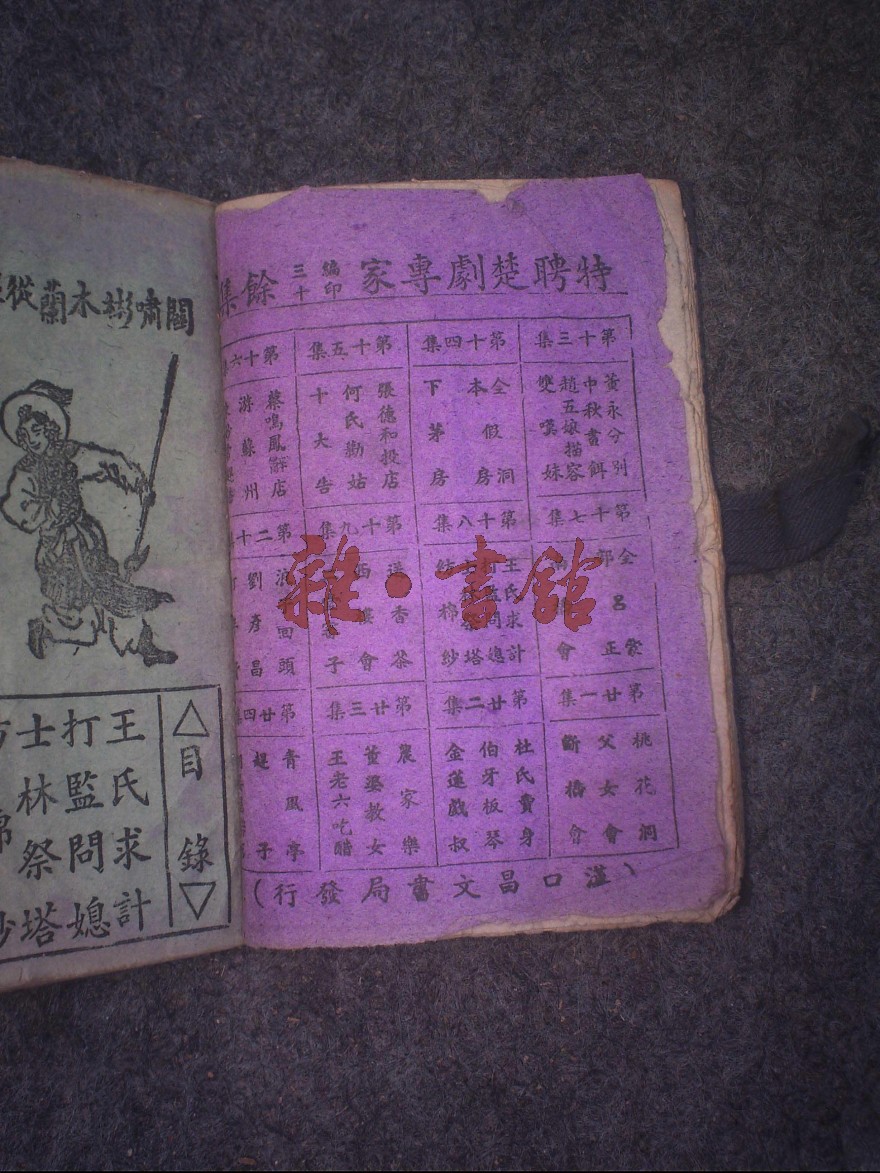 特聘楚劇專家編印三十餘集
第十三集
黃永分別
中秋賣餅
趙五娘描容
雙嘆妹
第十四集
全假洞房
本
下茅房
第十五集
張德和投店
何氏勸姑
十大告
第十六
蔡鳴鳳辭店
游蘇州
第十七集
全呂蒙正
會
第十八集
王氏求計
打監問媳
塔
紗
第十九集
送香茶
西樓會
子
第二十
頭
劉彥昌
第廿一集
桃花洞
父女會
斷橋會
第廿二集
杜氏賣身
伯牙板琴
金蓮戲叔
第廿三集
農家樂
董婆教女
王老六吃醋
第廿四集
青風亭
趕子
(漢口昌文書局發行)
關嘯彬木蘭從
△目錄▽
王氏求計
打監問媳
士林祭塔
雜·書館